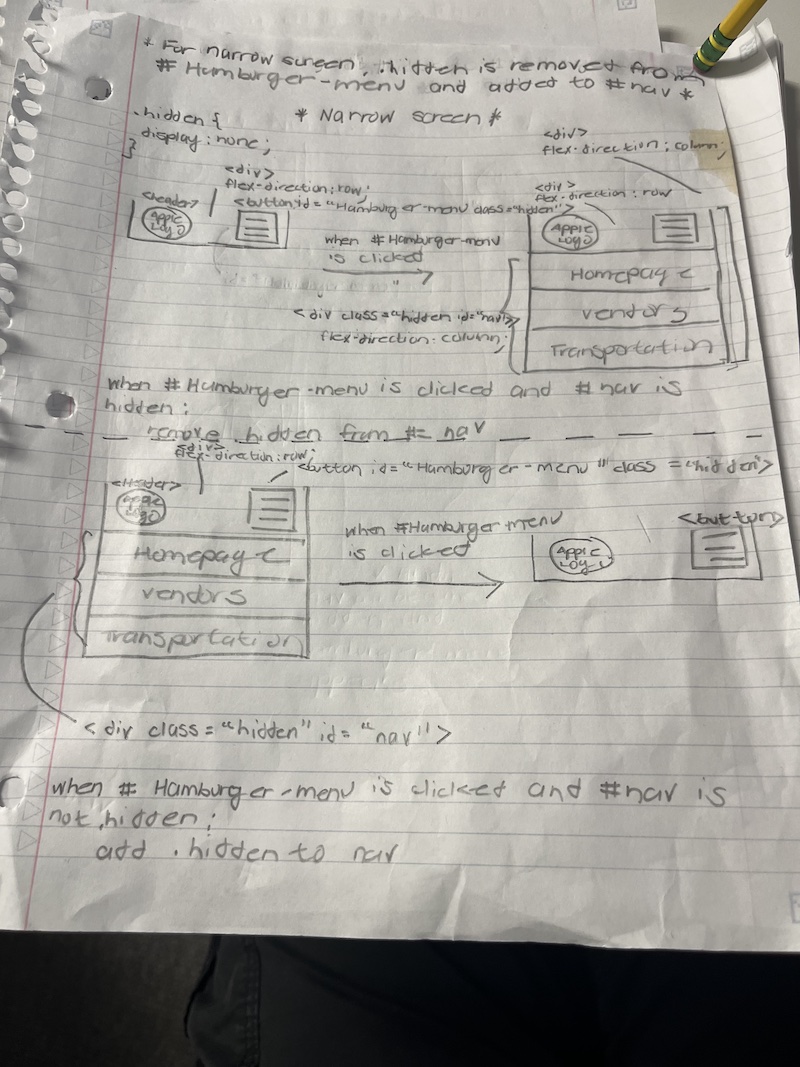 * For narrow screen, .hidden is removed from
# Hamburger-menu and added to #nav *
.hidden {
* Narrow screen *
display: none;
}
<div>
flex-direction: column;
<div>
flex-direction: row;
<header>
<button id="Hamburger-menu class="hidden">
<div>
flex-direction: row
Apple
Logo
Apple
Logo
when #Hamburger-menu
is clicked
Homepage
vendors
Transportation
<div class="hidden id="nav">
flex-direction: column;
when # Hamburger-menu is clicked and #nav is
hidden:
remove .hidden from # nav
<div>
flex-direction: row;
<button id="Hamburger-menu" class="hidden">
<Header>
Apple
Logo
Homepage
vendors
Transportation
when #Hamburger-menu
is clicked
<button>
Apple
Logo
<div class="hidden" id="nav">
when # Hamburger-menu is clicked and #nav is
not .hidden:
add .hidden to nav